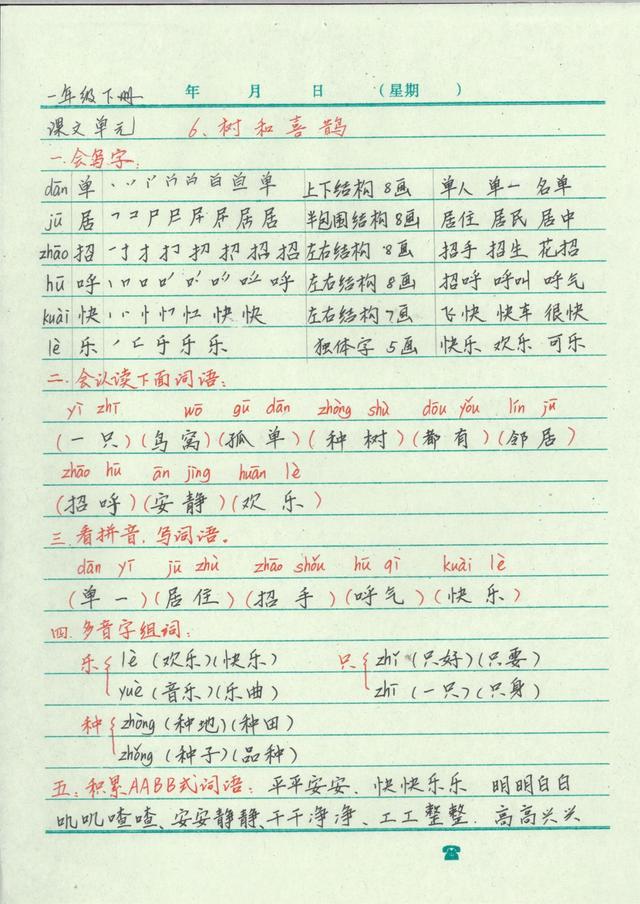 一年级下册 年 月 日 （星期 ）
课文单元 6、树和喜鹊
一.会写字：
dān 单 丶 丷 单 上下结构 8画 单人 单一 名单
jū 居 ㇕ コ 尸 尸 尸 居 居 居 半包围结构 8画 居住 居民 居中
zhāo 招 一 寸 扌 扌 招 招 招 招 左右结构 8画 招手 招生 花招
hū 呼 丨 口 口 呼 左右结构 8画 招呼 呼叫 呼气
kuài 快 丶 丷 忄 快 快 左右结构 7画 飞快 快车 很快
lè 乐 丿 乐 乐 独体字 5画 快乐 欢乐 可乐
二.会认读下面词语：
yī zhī wō gū dān zhòng shù dōu yǒu lín jū
（一只）（鸟窝）（孤单）（种树）（都有）（邻居）
zhāo hū ān jìng huān lè
（招呼）（安静）（欢乐）
三.看拼音，写词语。
dān yī jū zhù zhāo shǒu hū qì kuài lè
（单一）（居住）（招手）（呼气）（快乐）
四.多音字组词：
乐 lè（欢乐）（快乐） 只 zhǐ（只好）（只要）
yuè（音乐）（乐曲） zhī（一只）（只身）
种 zhòng（种地）（种田）
zhǒng（种子）（品种）
五：积累AABB式词语：平平安安、快快乐乐 明明白白
叽叽喳喳、安安静静、干干净净、工工整整、高高兴兴